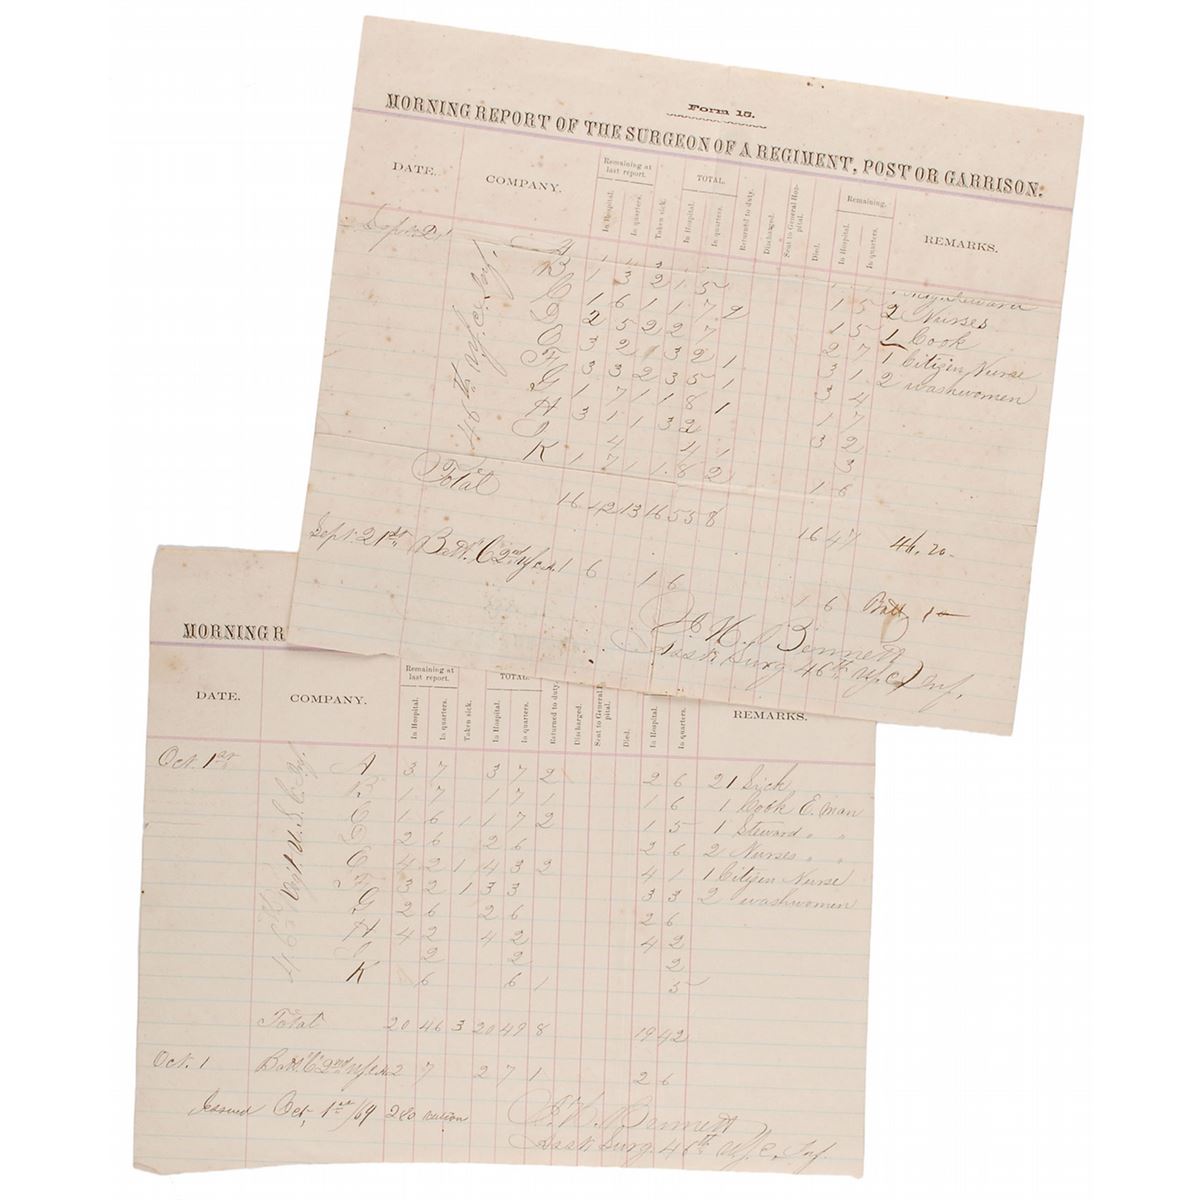 Form 15.
MORNING REPORT OF THE SURGEON OF A REGIMENT, POST OR GARRISON.
DATE. COMPANY. Remaining at last report. In Hospital. In quarters. Taken sick. TOTAL. In Hospital. In quarters. Returned to duty. Discharged. Sent to General Hospital. Died. Remaining. In Hospital. In quarters. REMARKS.
Sept. 21
46th
B 1 3 2 1 5
C 1 6 1 1 7 2 1 5 2 Nurses
D 2 5 2 2 7 1 5 1 Cook
3 2 1 3 2 1 2 7 1 Citizen Nurse
F 3 3 2 3 5 1 3 1 2 washwomen
G 1 7 1 1 8 1 3 4
H 3 1 1 3 2 1 7
4 3 2
K 1 7 1 1 8 2 3
1 6
Total 16 42 13 16 55 8 16 47
Sept. 21st Batt. C 2nd 1 6 1 6 1 6 Batty
Bennett
Asst Surg 46th Inf.
MORNING R
DATE. COMPANY. Remaining at last report. In Hospital. In quarters. Taken sick. TOTAL. In Hospital. In quarters. Returned to duty. Discharged. Sent to General H pital. Died. In Hospital. In quarters. REMARKS.
Oct. 1st A 3 7 3 7 2 2 6 21 Sick
46th Regt U.S.C. Inf.
B 1 7 1 7 1 1 6 1 Cook E. man
C 1 6 1 1 7 2 1 5 1 Steward " "
D 2 6 2 6 2 6 2 Nurses " "
4 2 1 4 3 2 4 1 1 Citizen Nurse
F 3 2 1 3 3 3 3 2 washwomen
G 2 6 2 6 2 6
H 4 2 4 2 4 2
2 2 2
K 6 6 1 5
Total 20 46 3 20 49 8 19 42
Oct. 1 Batt. "C" 2nd 2 7 2 7 1 2 6
Issued Oct. 1st /64
Bennett
Asst Surg. 46th Inf.